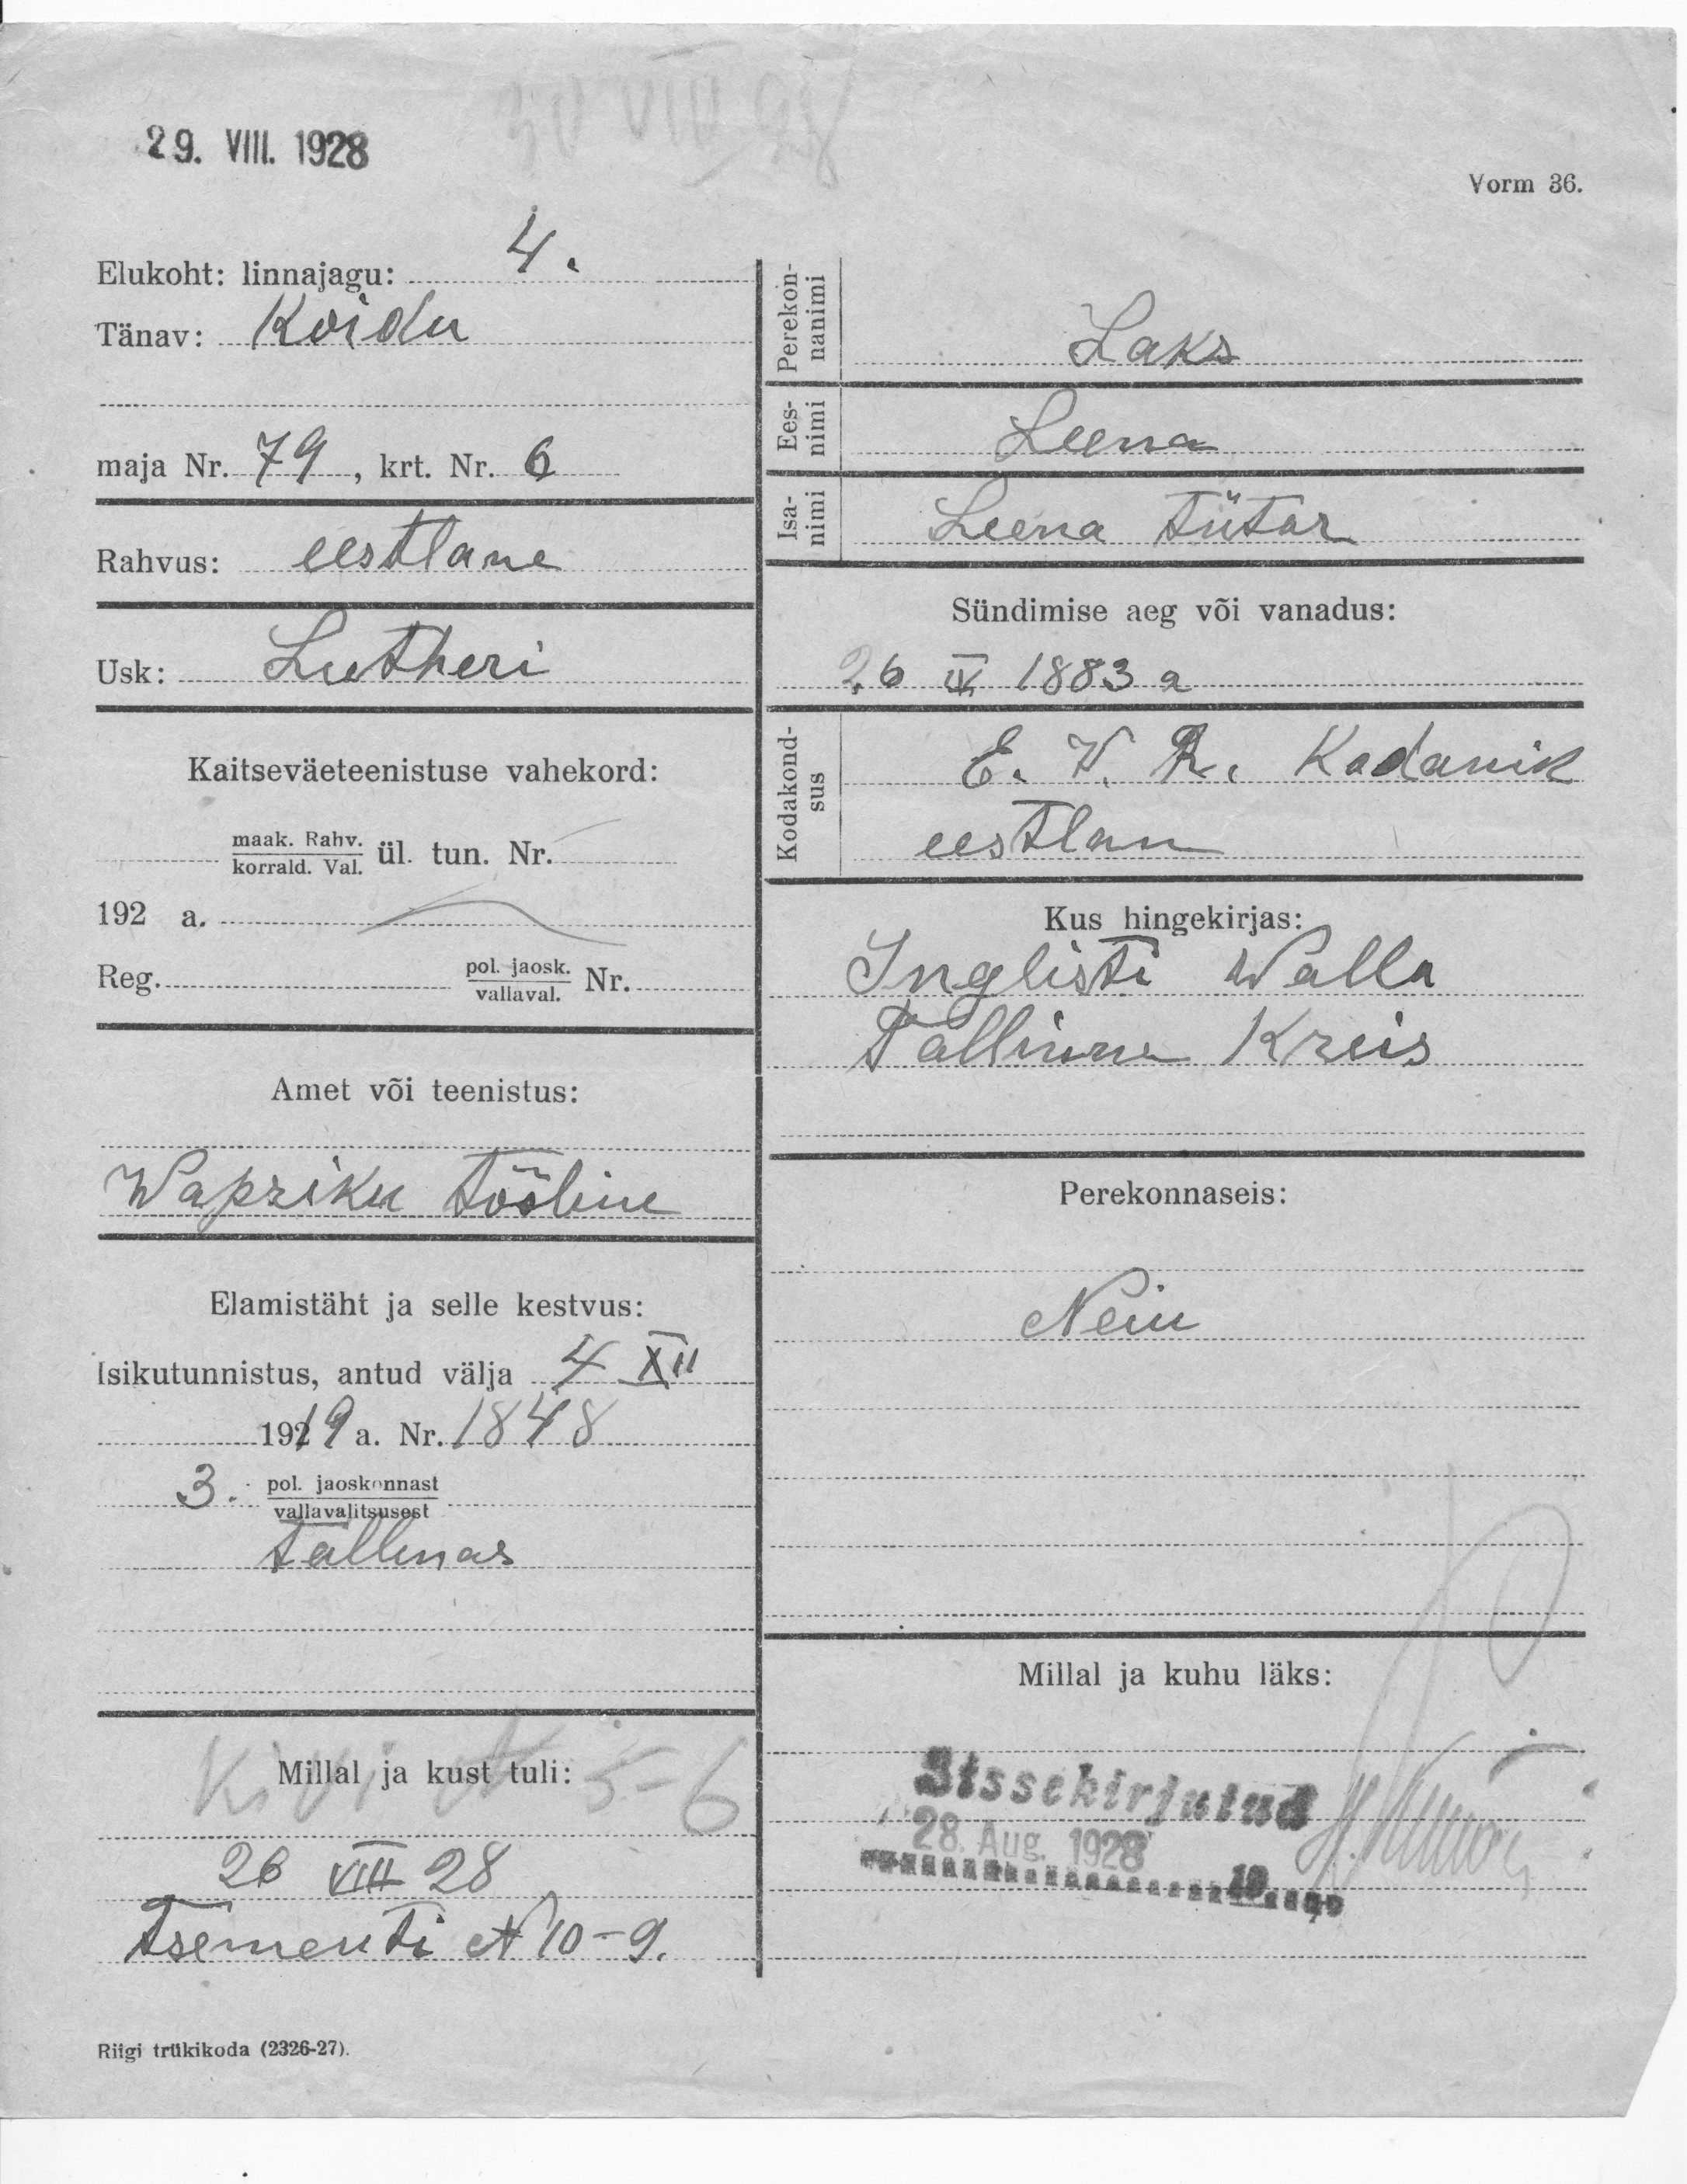 30 VIII 28
29. VIII. 1928
Vorm 36.
Elukoht: linnajagu: 4.
Tänav: Koidu
maja Nr. 79, krt. Nr. 6
Rahvus: eestlane
Usk: Lutheri
Kaitseväeteenistuse vahekord:
maak. Rahv.
korrald. Val. ül. tun. Nr.
192 a.
Reg. pol. jaosk.
vallaval. Nr.
Amet või teenistus:
Wapriku tööline
Elamistäht ja selle kestvus:
Isikutunnistus, antud välja 4 XII
1919 a. Nr. 1848
3. pol. jaoskonnast
vallavalitsusest
Tallinas
Millal ja kust tuli:
Kivi 5-6
26 VIII 28
Tsementi N 10-9.
Riigi trükikoda (2326-27).
Perekon-
nanimi
Laks
Ees-
nimi
Leena
Isa-
nimi
Leena tütar
Sündimise aeg või vanadus:
26 IV 1883 a
Kodakond-
sus
E. W. R. Kodanik
eestlan
Kus hingekirjas:
Inglisti Walla
Tallinna Kreis
Perekonnaseis:
Neiu
Millal ja kuhu läks:
Sissekirjutud
28. Aug. 1928
19